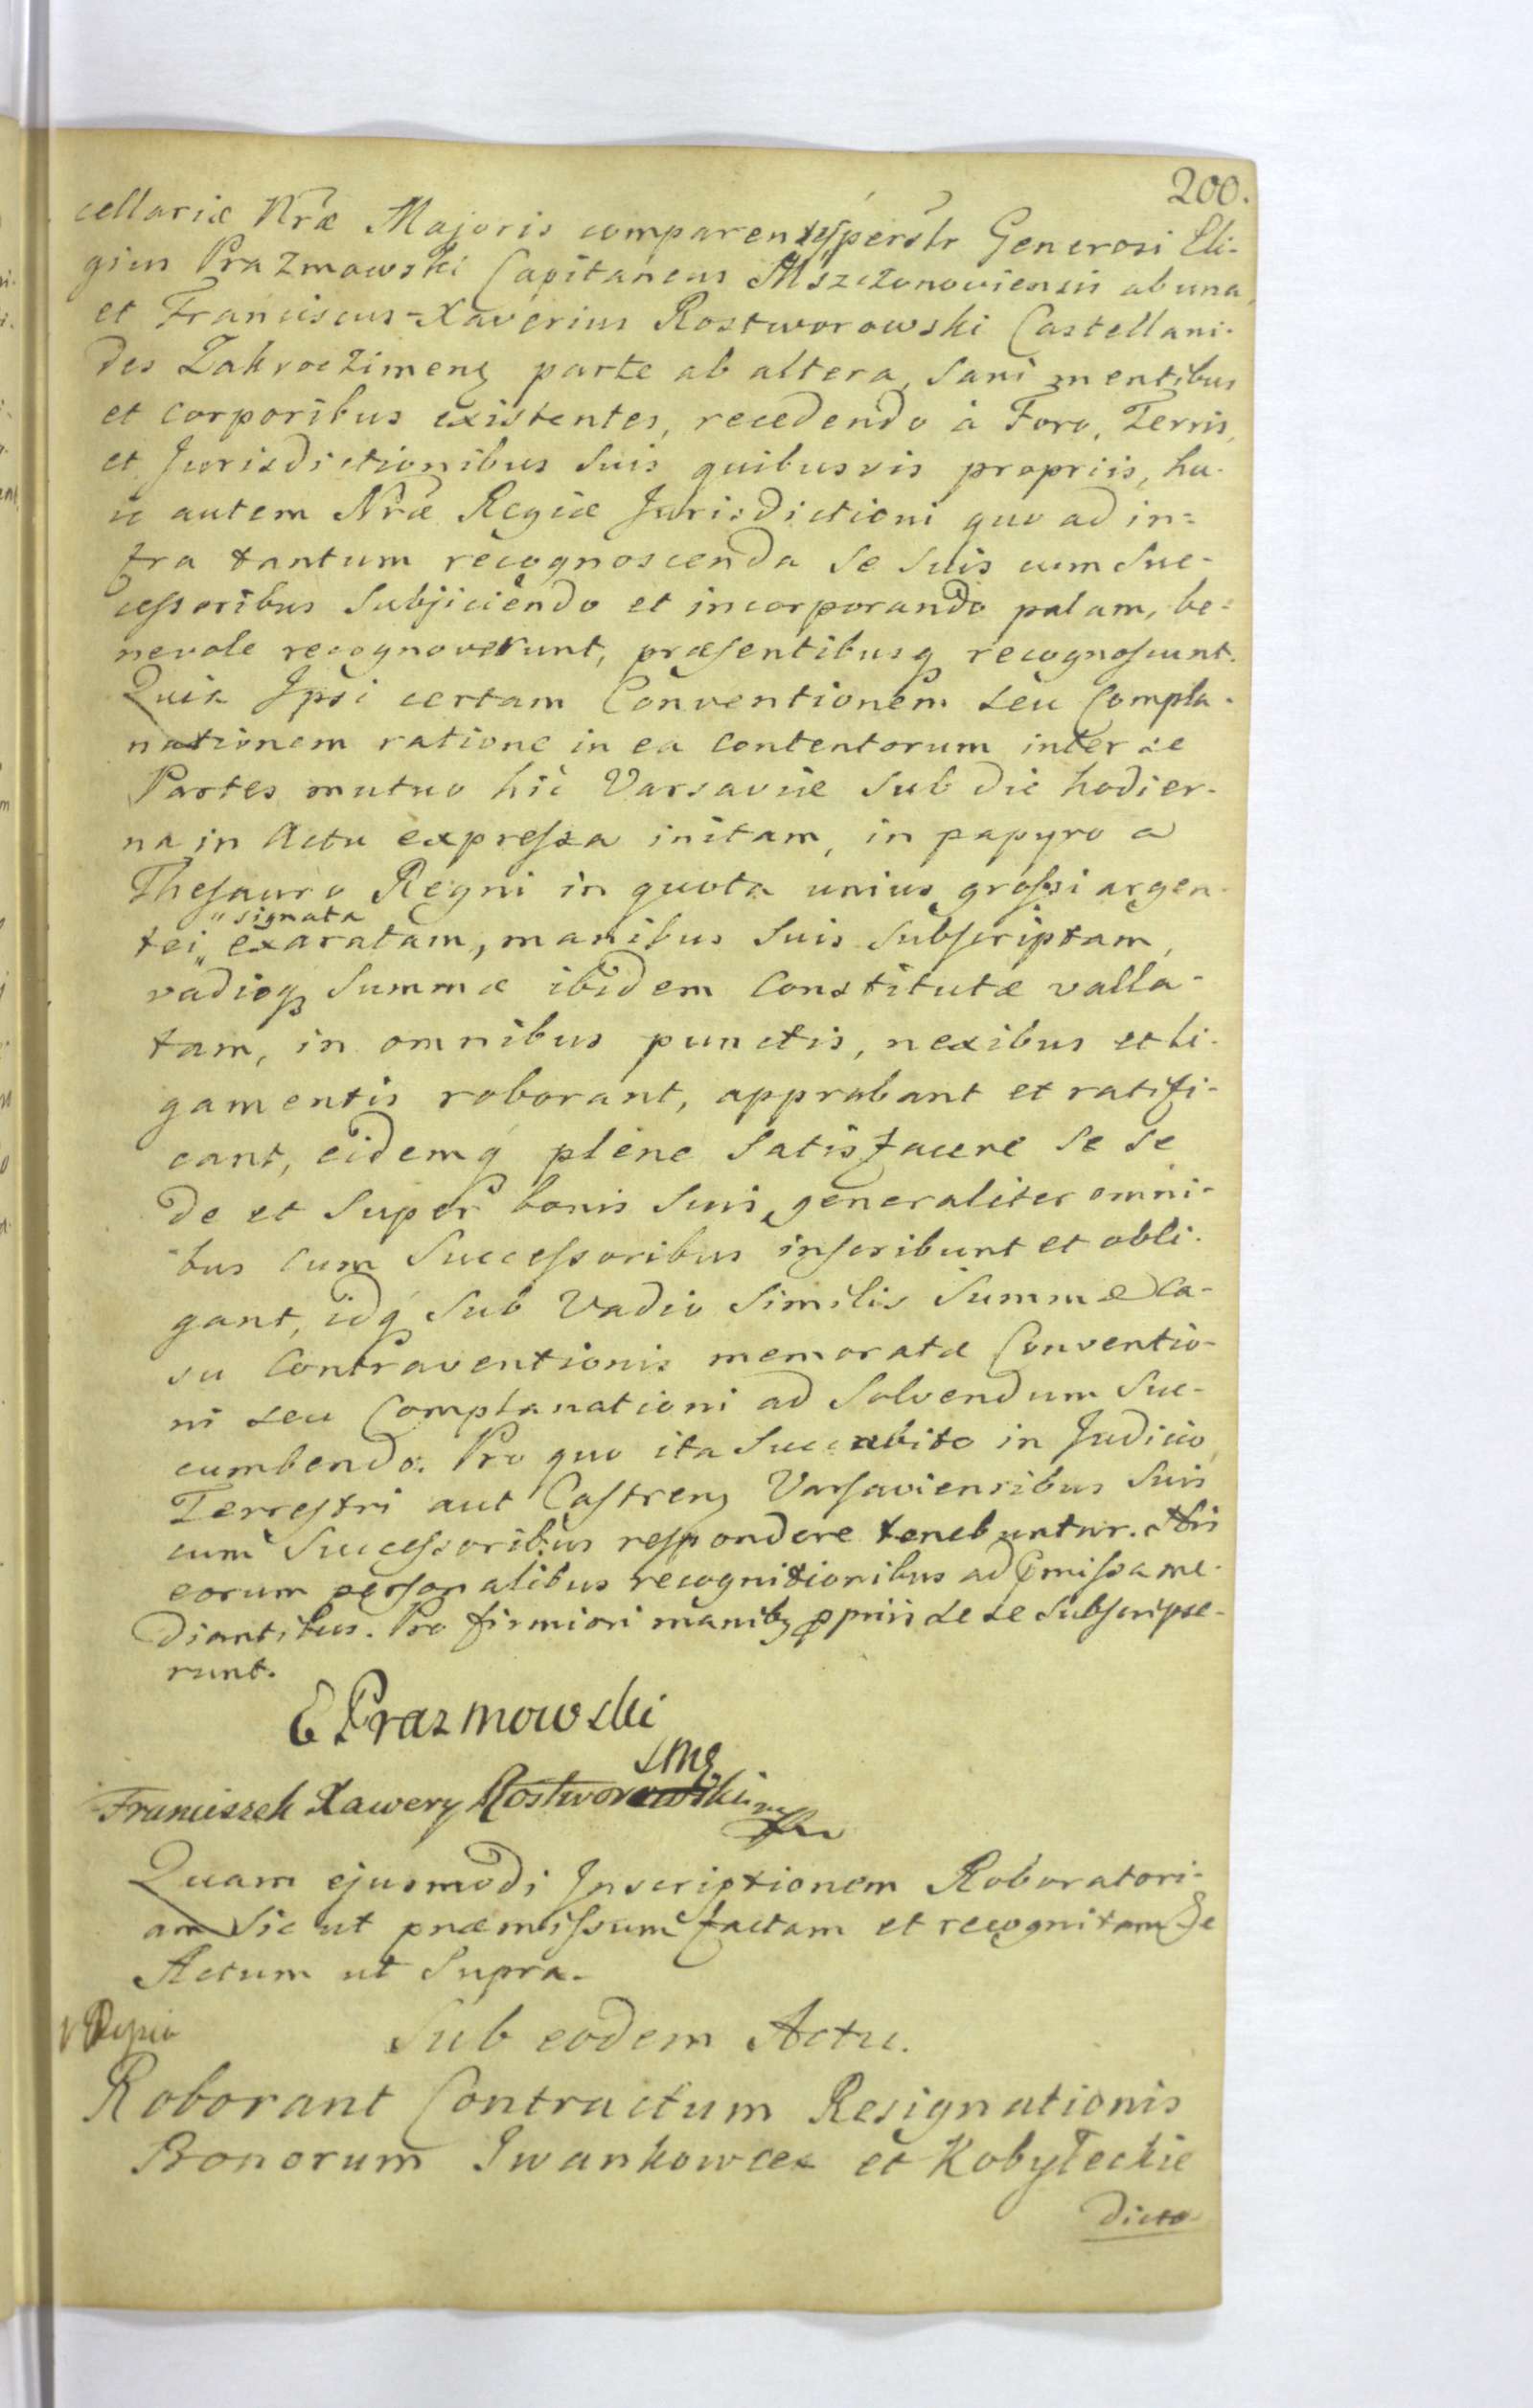 200.
cellariæ Nræ Majoris comparentes personlr Generosi Eli-
gius Prazmowski Capitaneus Mszczonoviensis ab una
et Franciscus-Xaverius Rostworowski Castellani-
des Zakroczimens parte ab altera, Sani mentibus
et corporibus existentes, recedendo à Foro, Terris,
et Jurisdictionibus Suis quibusvis propriis, hu-
ic autem Nræ Regiæ Jurisdictioni quo ad in=
fra tantum recognoscenda Se Suis cum Suc-
cessoribus Subjiciendo et incorporando palam, be=
nevole recognoverunt, præsentibusq recognoscunt.
Quia Ipsi certam Conventionem seu Compla-
nationem ratione in ea contentorum inter se
Partes mutuo hic Varsaviæ Sub die hodier-
na in Actu expressa initam, in papyro a
Thesauro Regni in quota unius grossi argen-
" signata
tei " exaratam, manibus Suis Subscriptam,
vadioq Summæ ibidem Constitutæ valla-
tam, in omnibus punctis, nexibus et li-
gamentis roborant, approbant et ratifi-
cant, eidemq plene Satisfacere Se Se
de et Super bonis Suis generaliter omni-
bus cum Successoribus inscribunt et obli-
gant, idq Sub Vadio Similis Summæ Ca-
su Contraventionis memoratæ Conventio-
ni seu Complanationi ad Solvendum Suc-
cumbendo. Pro quo ita Succubito in Judicio
Terrestri aut Castrens Varsaviensibus Suis
cum Successoribus respondere tenebuntur. His
eorum personalibus recognitionibus ad pmissa me-
diantibus. Pro firmiori manibz ppriis se se Subscripse-
runt.
E Prazmowski
SMę
Franciszek Xawery Rostworowski
Quam ejusmodi Inscriptionem Roboratori-
am Sic ut præmissum factam et recognitam &c
Actum ut Supra.
Sub eodem Actu.
Roborant Contractum Resignationis
Bonorum Iwankowce et Kobyleckie
dicto